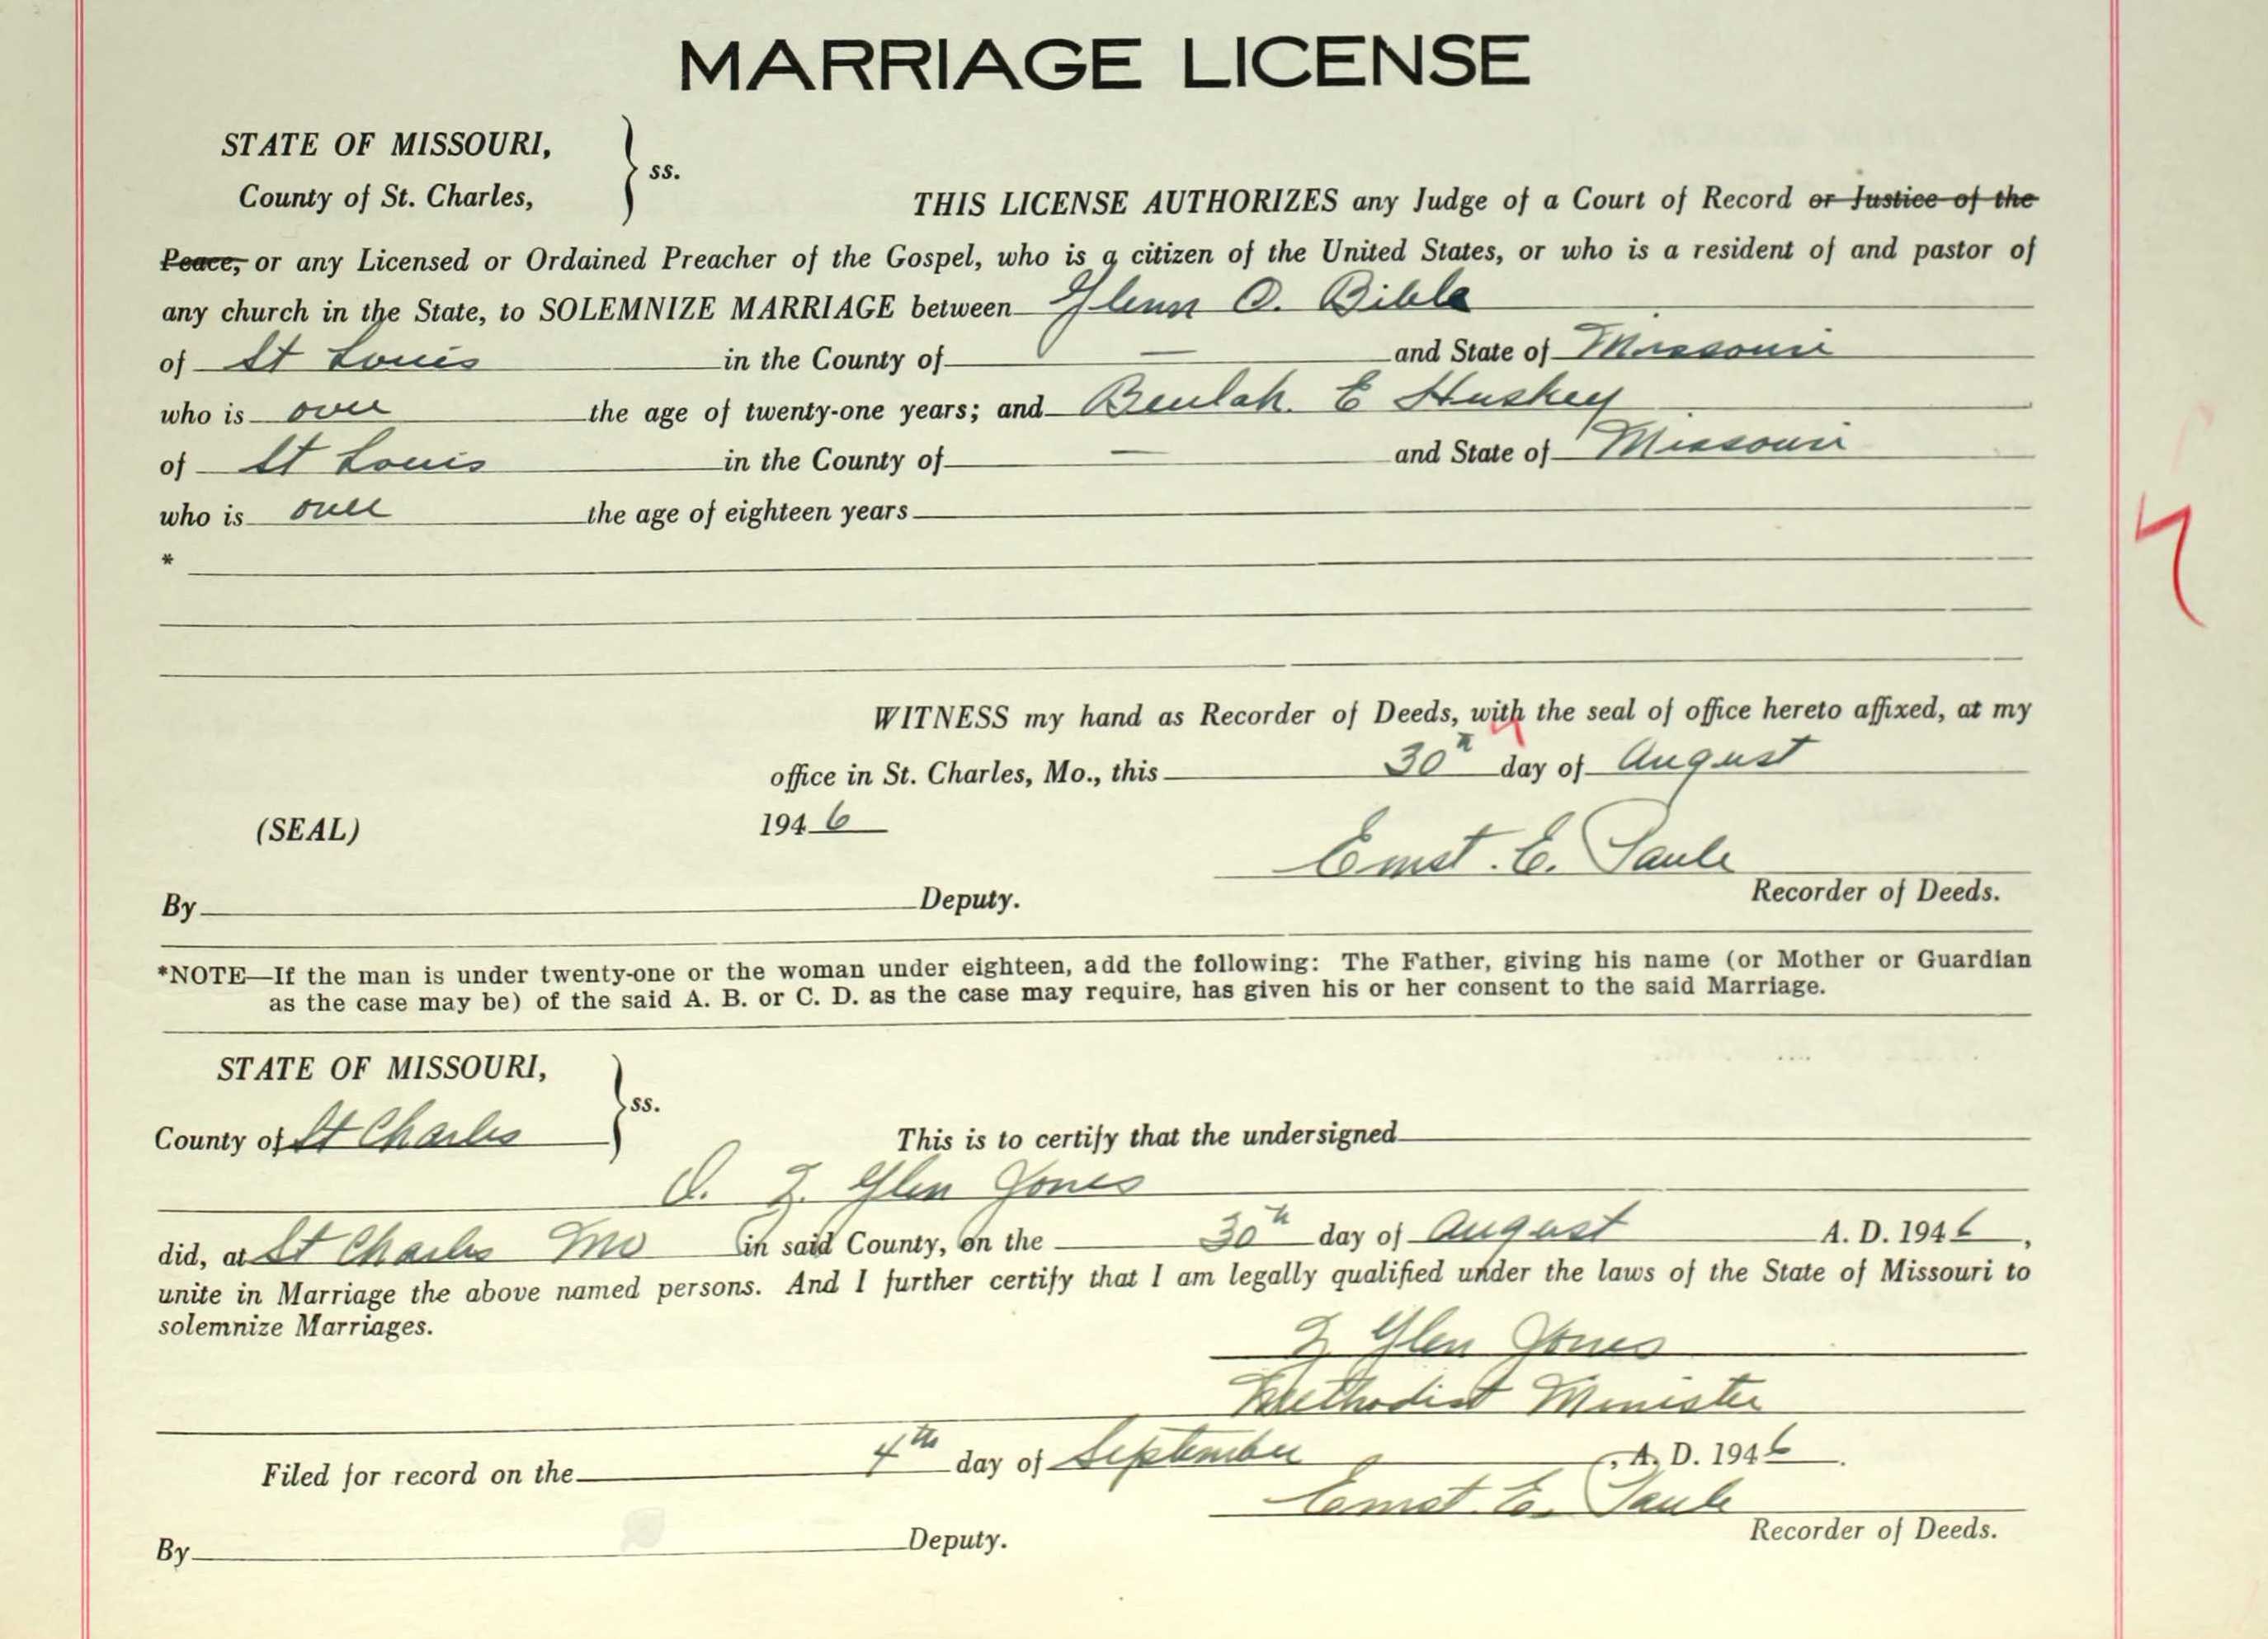 MARRIAGE LICENSE
STATE OF MISSOURI,
County of St. Charles,
ss.
THIS LICENSE AUTHORIZES any Judge of a Court of Record or Justice of the
Peace, or any Licensed or Ordained Preacher of the Gospel, who is a citizen of the United States, or who is a resident of and pastor of
any church in the State, to SOLEMNIZE MARRIAGE between Glenn O. Bible
of St Louis in the County of — and State of Missouri
who is over the age of twenty-one years; and Beulah. E Huskey
of St Louis in the County of — and State of Missouri
who is over the age of eighteen years
*
WITNESS my hand as Recorder of Deeds, with the seal of office hereto affixed, at my
office in St. Charles, Mo., this 30th day of August
(SEAL) 1946
Ernst. E. Paule
By Deputy. Recorder of Deeds.
*NOTE—If the man is under twenty-one or the woman under eighteen, add the following: The Father, giving his name (or Mother or Guardian
as the case may be) of the said A. B. or C. D. as the case may require, has given his or her consent to the said Marriage.
STATE OF MISSOURI,
ss.
County of St Charles This is to certify that the undersigned
Glen Jones
did, at St Charles Mo in said County, on the 30th day of August A. D. 1946,
unite in Marriage the above named persons. And I further certify that I am legally qualified under the laws of the State of Missouri to
solemnize Marriages.
Glen Jones
Methodist Minister
Filed for record on the 4th day of September, A. D. 1946.
Ernst. E. Paule
By Deputy. Recorder of Deeds.